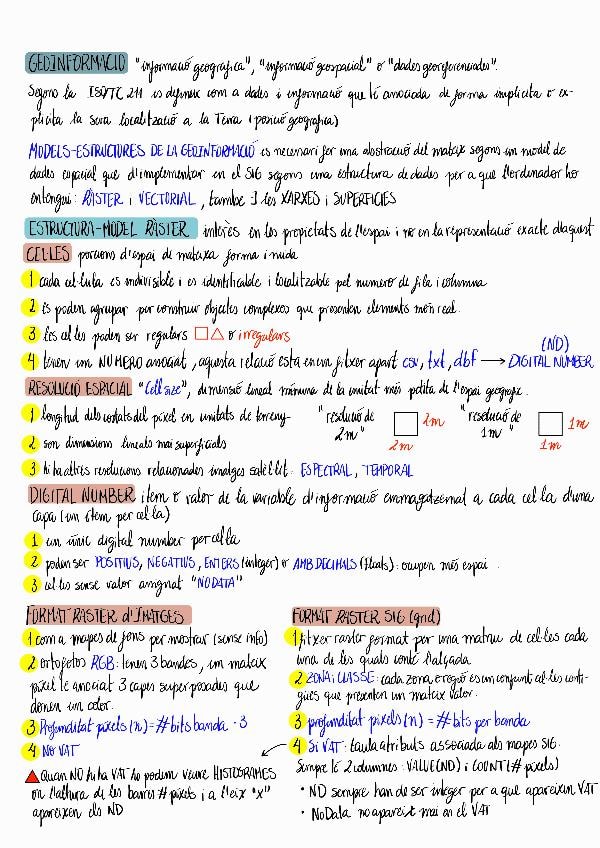 GEOINFORMACIÓ "informació geogràfica", "informació geoespacial" o "dades georeferenciades".
Segons la ISO/TC 211 es defineix com a dades i informació que té associada de forma implícita o ex-
plícita la seva localització a la Terra (posició geogràfica)
MODELS-ESTRUCTURES DE LA GEOINFORMACIÓ es necesari fer una abstracció del mateix segons un model de
dades espacial que d'implementar en el SIG segons una estructura de dades per a que l'ordinador ho
entengui: RÀSTER i VECTORIAL, també ∃ les XARXES i SUPERFICIES
ESTRUCTURA-MODEL RÀSTER interès en les propietats de l'espai i no en la representació exacte d'aquest
CEL·LES porcions d'espai de mateixa forma i mida
1 cada cel·lula es indivisible i es identificable i localitzable pel numero de fila i columna
2 Es poden agrupar per construir objectes complexos que presenten elements món real.
3 les cel·les poden ser regulars □ △ o irregulars
4 tenen un NÚMERO associat, aquesta relació està en un fitxer apart csv, txt, dbf → DIGITAL NUMBER (ND)
RESOLUCIÓ ESPACIAL "Cell size", dimensió lineal mínima de la unitat més petita de l'espai geogràfic.
1 longitud dels costats del píxel en unitats de terreny-
"resolució de 2m" 2m 2m
"resolució de 1m" 1m 1m
2 són dimensions lineals mai superficials
3 hi ha altres resolucions relacionades imatges satèl·lit: ESPECTRAL, TEMPORAL
DIGITAL NUMBER ítem o valor de la variable d'informació emmagatzemat a cada cel·la d'una
capa (un ítem per cel·la)
1 un únic digital number per cel·la
2 poden ser POSITIUS, NEGATIUS, ENTERS (integer) or AMB DECIMALS (floats): ocupen més espai.
3 cel·les sense valor assignat "NO DATA"
FORMAT RASTER d'IMATGES
1 com a mapes de fons per mostrar (sense info)
2 ortofotos RGB: tenen 3 bandes, un mateix
píxel té anociat 3 capes superposades que
donen un color.
3 Profunditat píxels (n) = # bits banda · 3
4 NO VAT
▲ Quan NO hi ha VAT ho podem veure HISTOGRAMES
on l'altura de les barres # píxels i a l'eix "x"
apareixen els ND
FORMAT RASTER SIG (grid)
1 fitxer raster format per una matriu de cel·les cada
una de les quals conté l'alçada
2 ZONA i CLASSE: cada zona o regió es un conjunt cel·les conti-
gües que presenten un mateix valor.
3 profunditat píxels (n) = # bits per banda
4 SI VAT: taula atributs associada als mapes SIG.
Sempre té 2 columnes: VALUE (ND) i COUNT (# píxels)
• ND sempre han de ser integer per a que apareixin VAT
• No Data no apareix mai en el VAT